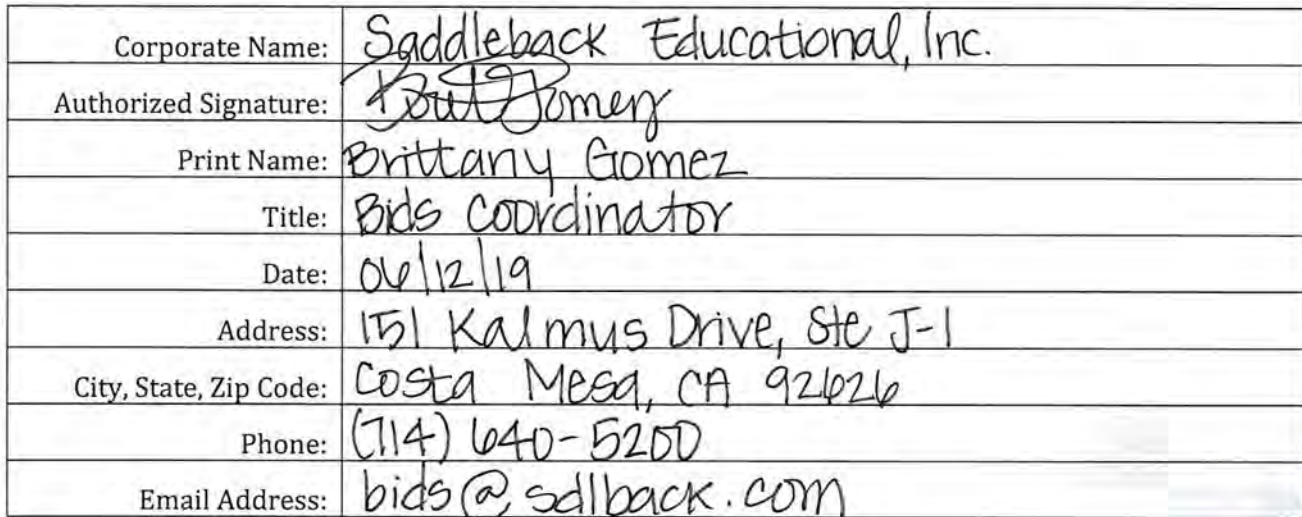 Corporate Name: Saddleback Educational, Inc.
Authorized Signature:
Print Name: Brittany Gomez
Title: Bids Coordinator
Date: 06/12/19
Address: 151 Kalmus Drive, Ste J-1
City, State, Zip Code: Costa Mesa, CA 92626
Phone: (714) 640-5200
Email Address: bids@sdlback.com